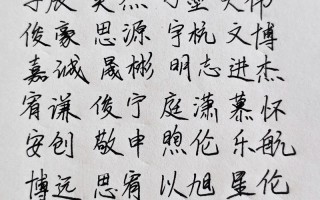 俊豪 思源 宇杭 文博
嘉诚 晟彬 明志 进杰
宥谦 俊宁 庭潇 慕怀
安创 敬申 煦伦 乐航
博远 思宥 以旭 星伦